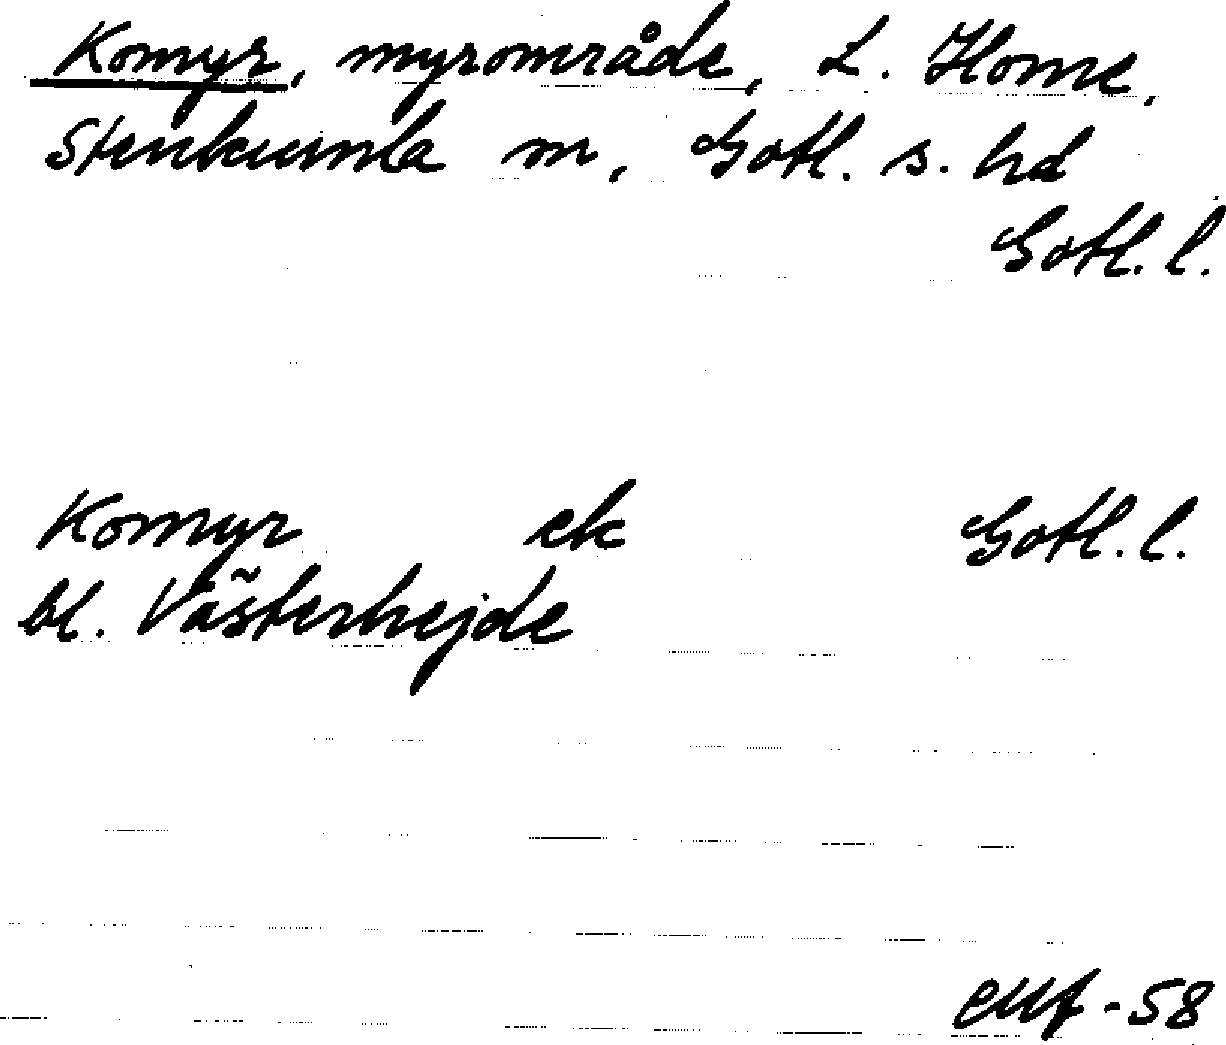 Komyr, myrområde, L. Home,
Stenkumla sn, Gotl. s. hd
Gotl. l.
Komyr ek Gotl. l.
bl. Västerhejde
-58